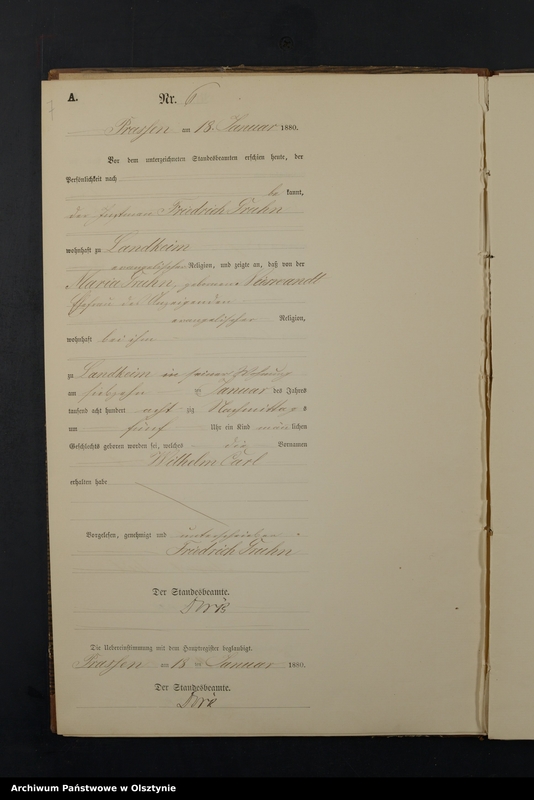 7
A.
Nr. 6
Prassen am 18. Januar 1880.
Vor dem unterzeichneten Standesbeamten erschien heute, der
Persönlichkeit nach
be kannt,
der Instmann Friedrich
wohnhaft zu Landheim
evangelischer Religion, und zeigte an, daß von der
Maria geborene
Ehefrau des Anzeigenden
evangelischer Religion,
wohnhaft bei ihm
zu Landheim in seiner Wohnung
am siebzehn ten Januar des Jahres
tausend acht hundert acht zig Nachmittags
um fünf Uhr ein Kind männlichen
Geschlechts geboren worden sei, welches die Vornamen
Wilhelm Carl
erhalten habe
Vorgelesen, genehmigt und unterschrieben
Friedrich
Der Standesbeamte.
Die Uebereinstimmung mit dem Hauptregister beglaubigt.
Prassen am 18 ten Januar 1880.
Der Standesbeamte.
Archiwum Państwowe w Olsztynie